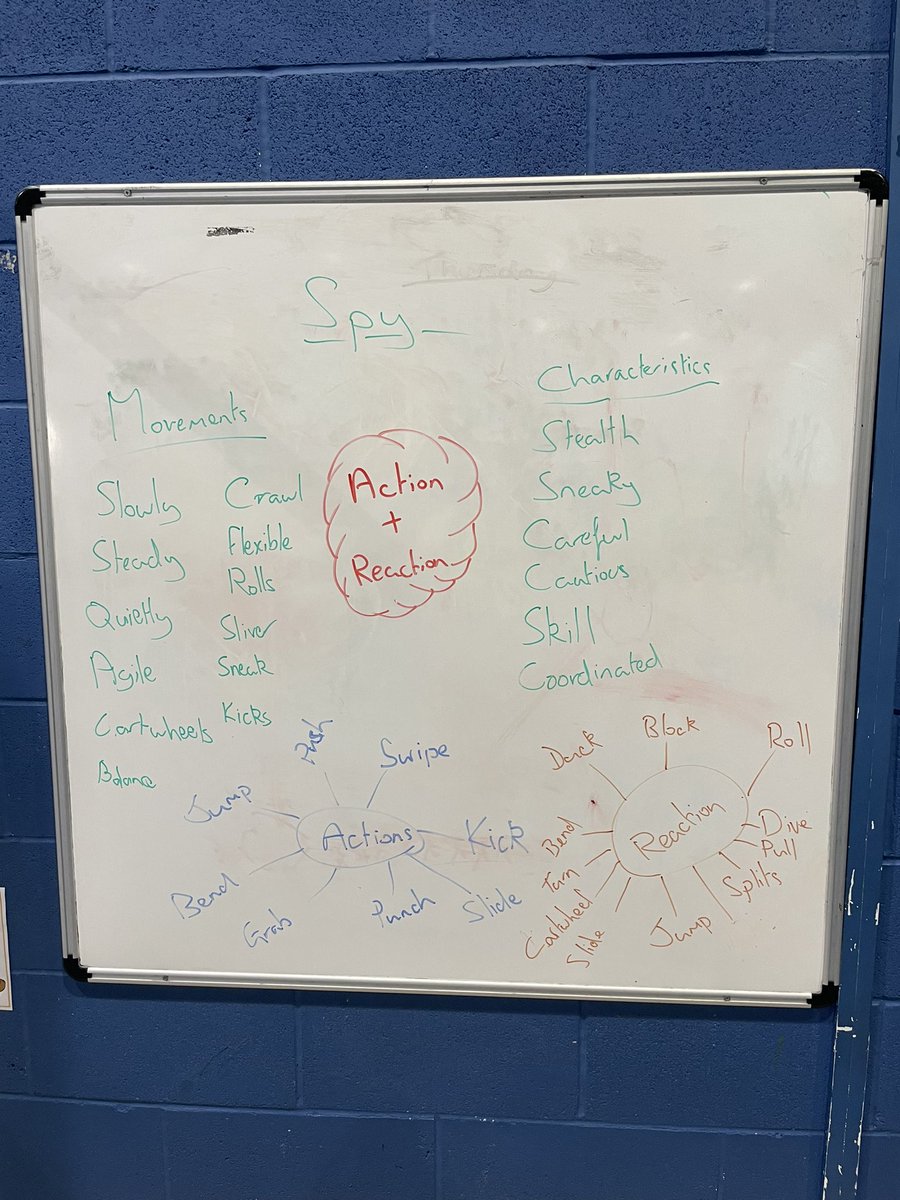 Thursday
Spy
Movements
Slowly
Steady
Quietly
Agile
Cartwheels
Balance
Crawl
Flexible
Rolls
Sliver
Sneak
Kicks
Action
+
Reaction
Characteristics
Stealth
Sneaky
Careful
Cautious
Skill
Coordinated
Actions
Push
Swipe
Jump
Kick
Bend
Grab
Punch
Slide
Reaction
Duck
Block
Roll
Bend
Dive
Pull
Turn
Splits
Cartwheel
Slide
Jump